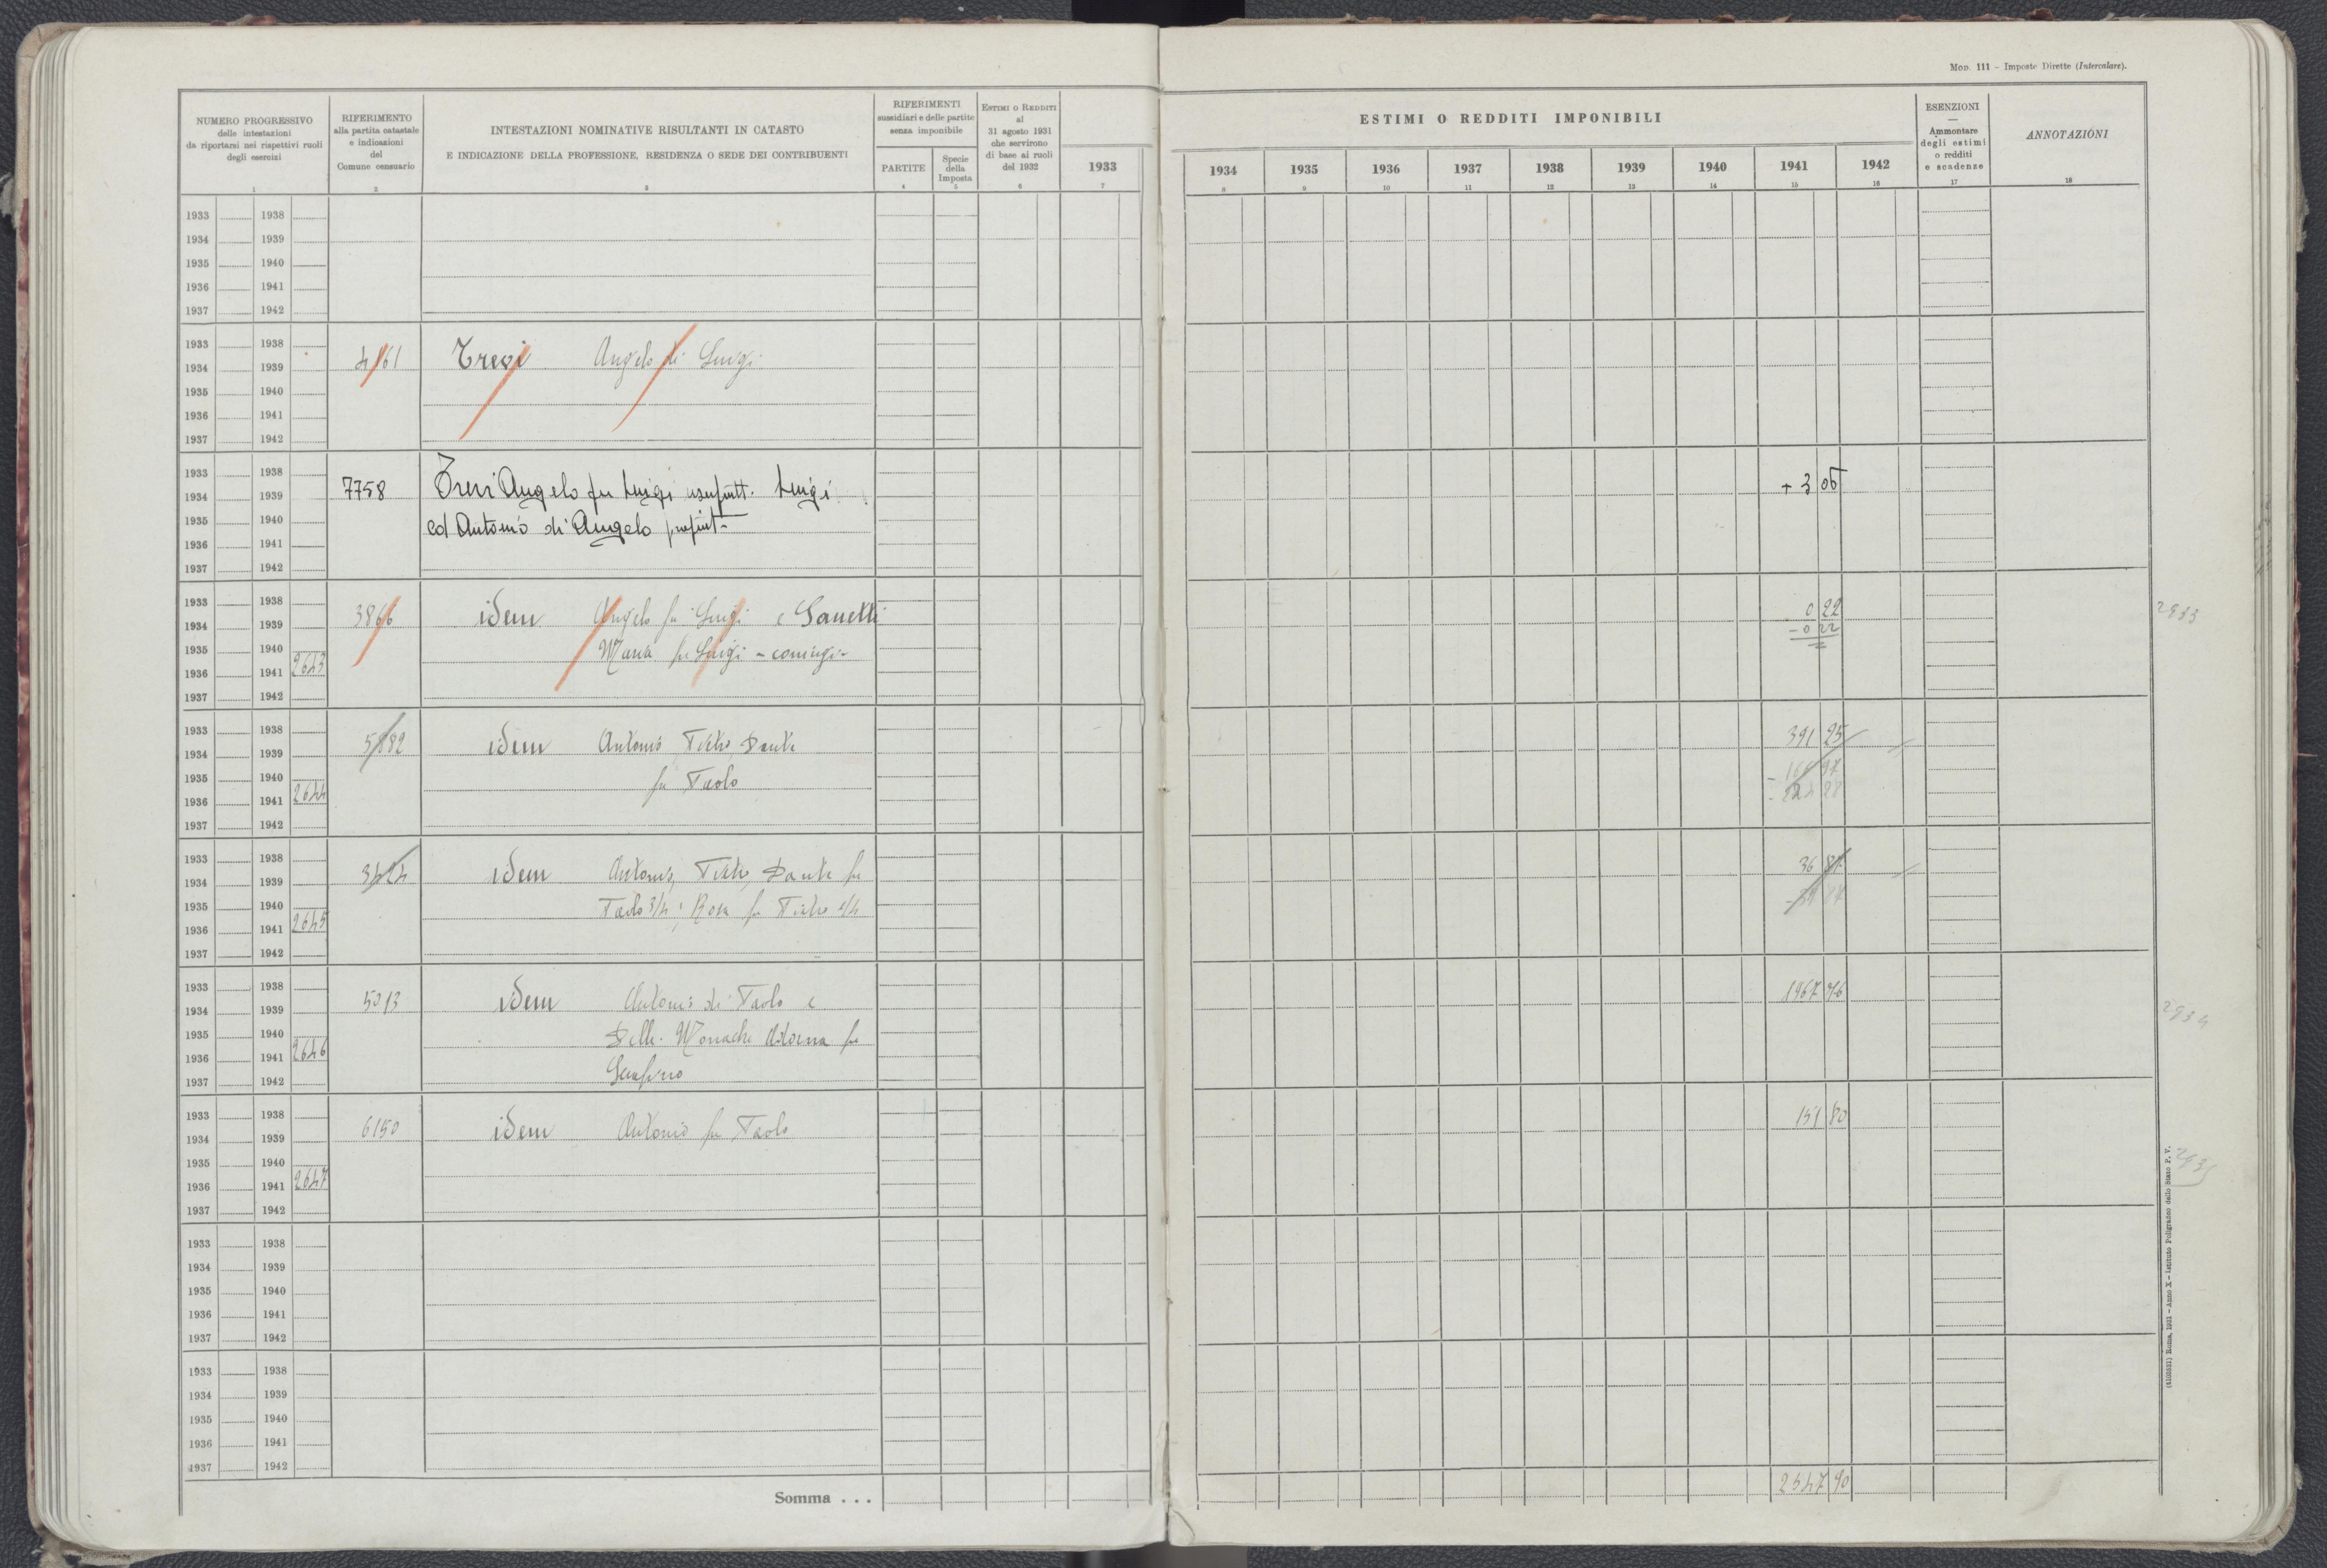 Mod. 111 – Imposte Dirette (Intercalare).
NUMERO PROGRESSIVO
delle intestazioni
da riportarsi nei rispettivi ruoli
degli esercizi
1
RIFERIMENTO
alla partita catastale
e indicazioni
del
Comune censuario
2
INTESTAZIONI NOMINATIVE RISULTANTI IN CATASTO
E INDICAZIONE DELLA PROFESSIONE, RESIDENZA O SEDE DEI CONTRIBUENTI
3
RIFERIMENTI
sussidiari e delle partite
senza imponibile
PARTITE
4
Specie
della
Imposta
5
ESTIMI O REDDITI
al
31 agosto 1931
che servirono
di base ai ruoli
del 1932
6
1933
7
ESTIMI O REDDITI IMPONIBILI
1934 1935 1936 1937 1938 1939 1940 1941 1942
8 9 10 11 12 13 14 15 16
ESENZIONI
—
Ammontare
degli estimi
o redditi
e scadenze
17
ANNOTAZIONI
18
1933 1938
1934 1939
1935 1940
1936 1941
1937 1942
1933 1938
1934 1939 4161 Trevi Angelo di Luigi
1935 1940
1936 1941
1937 1942
1933 1938
1934 1939 7758 Trevi Angelo fu Luigi usufrutt. Luigi + 3 06
1935 1940 ed Antonio di Angelo propriet-
1936 1941
1937 1942
1933 1938
1934 1939 3866 idem Angelo fu Luigi e Sanetti 0 22 2933
- 0 22
1935 1940 Maria fu Luigi - coniugi -
1936 1941 2643
1937 1942
1933 1938
1934 1939 5882 idem Antonio Pietro Dante 391 25
1935 1940 fu Paolo - 166 97
1936 1941 2644 - 224 28
1937 1942
1933 1938
1934 1939 3424 idem Antonio, Pietro, Dante fu 36 87
1935 1940 Paolo 3/4; Rosa fu Pietro 1/4
1936 1941 2645
1937 1942
1933 1938
1934 1939 5013 idem Antonio di Paolo e 1967 76 2934
1935 1940 Delle Monache Antonia fu
1936 1941 2646
1937 1942 Serafino
1933 1938
1934 1939 6150 idem Antonio fu Paolo 151 80
1935 1940 2935
1936 1941 2647
1937 1942
1933 1938
1934 1939
1935 1940
1936 1941
1937 1942
1933 1938
1934 1939
1935 1940
1936 1941
1937 1942
Somma . . . 2547 90
(4105531) Roma, 1931 – Anno X – Istituto Poligrafico dello Stato P. V.